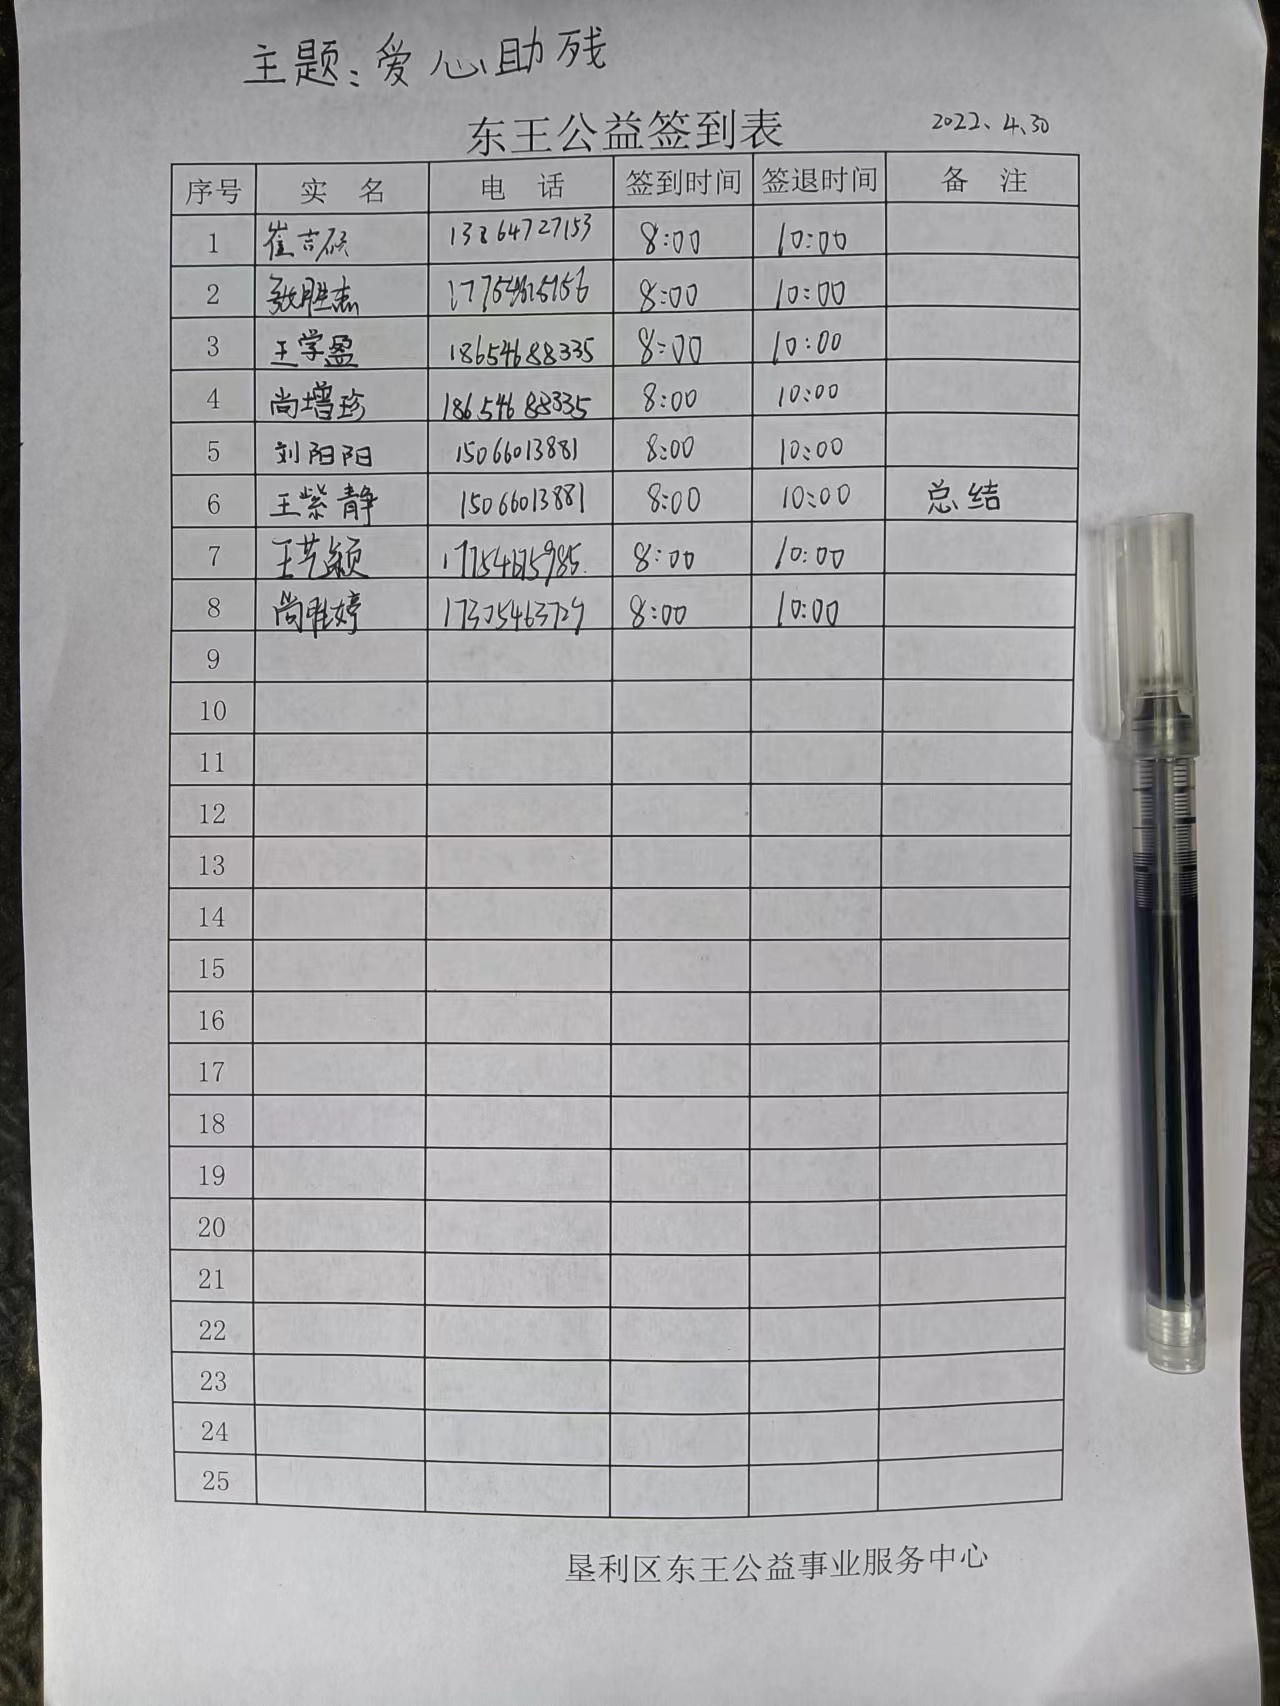 主题：爱心助残
东王公益签到表 2022、4、30
序号 实名 电话 签到时间 签退时间 备注
1 崔吉硕 13264727153 8:00 10:00
2 张胜杰 8:00 10:00
3 王学盈 18654688335 8:00 10:00
4 尚增珍 18654688335 8:00 10:00
5 刘阳阳 15066013881 8:00 10:00
6 王紫静 15066013881 8:00 10:00 总结
7 王艺颖 17754675985. 8:00 10:00
8 8:00 10:00
9
10
11
12
13
14
15
16
17
18
19
20
21
22
23
24
25
垦利区东王公益事业服务中心